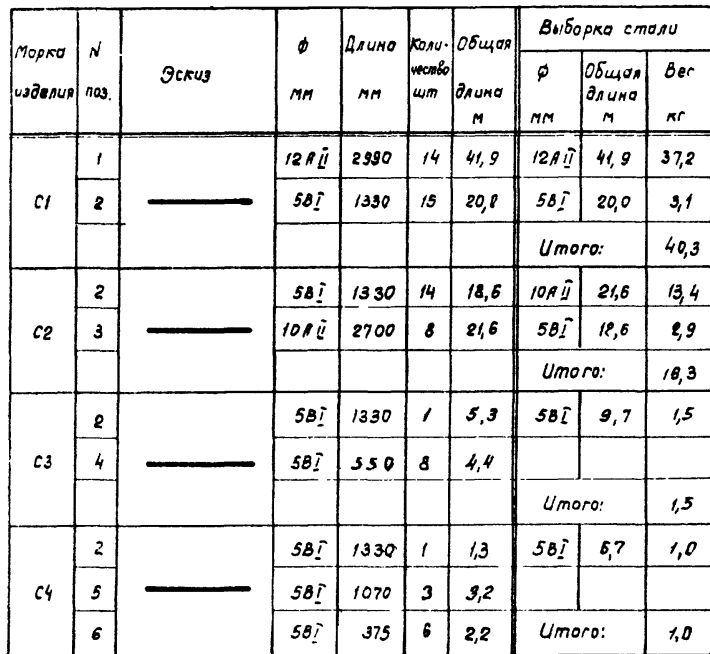 Марка изделия | N поз. | Эскиз | ф мм | Длина мм | Коли-чество шт | Общая длина м | Выборка стали
ф мм | Общая длина м | Вес кг
С1 | 1 | 12АII | 2990 | 14 | 41,9 | 12АII | 41,9 | 37,2
2 | 5ВI | 1330 | 15 | 20,0 | 5ВI | 20,0 | 3,1
Итого: | 40,3
С2 | 2 | 5ВI | 1330 | 14 | 18,6 | 10АII | 21,6 | 13,4
3 | 10АII | 2700 | 8 | 21,6 | 5ВI | 18,6 | 2,9
Итого: | 16,3
С3 | 2 | 5ВI | 1330 | 1 | 5,3 | 5ВI | 9,7 | 1,5
4 | 5ВI | 550 | 8 | 4,4
Итого: | 1,5
С4 | 2 | 5ВI | 1330 | 1 | 1,3 | 5ВI | 6,7 | 1,0
5 | 5ВI | 1070 | 3 | 3,2
6 | 5ВI | 375 | 6 | 2,2 | Итого: | 1,0